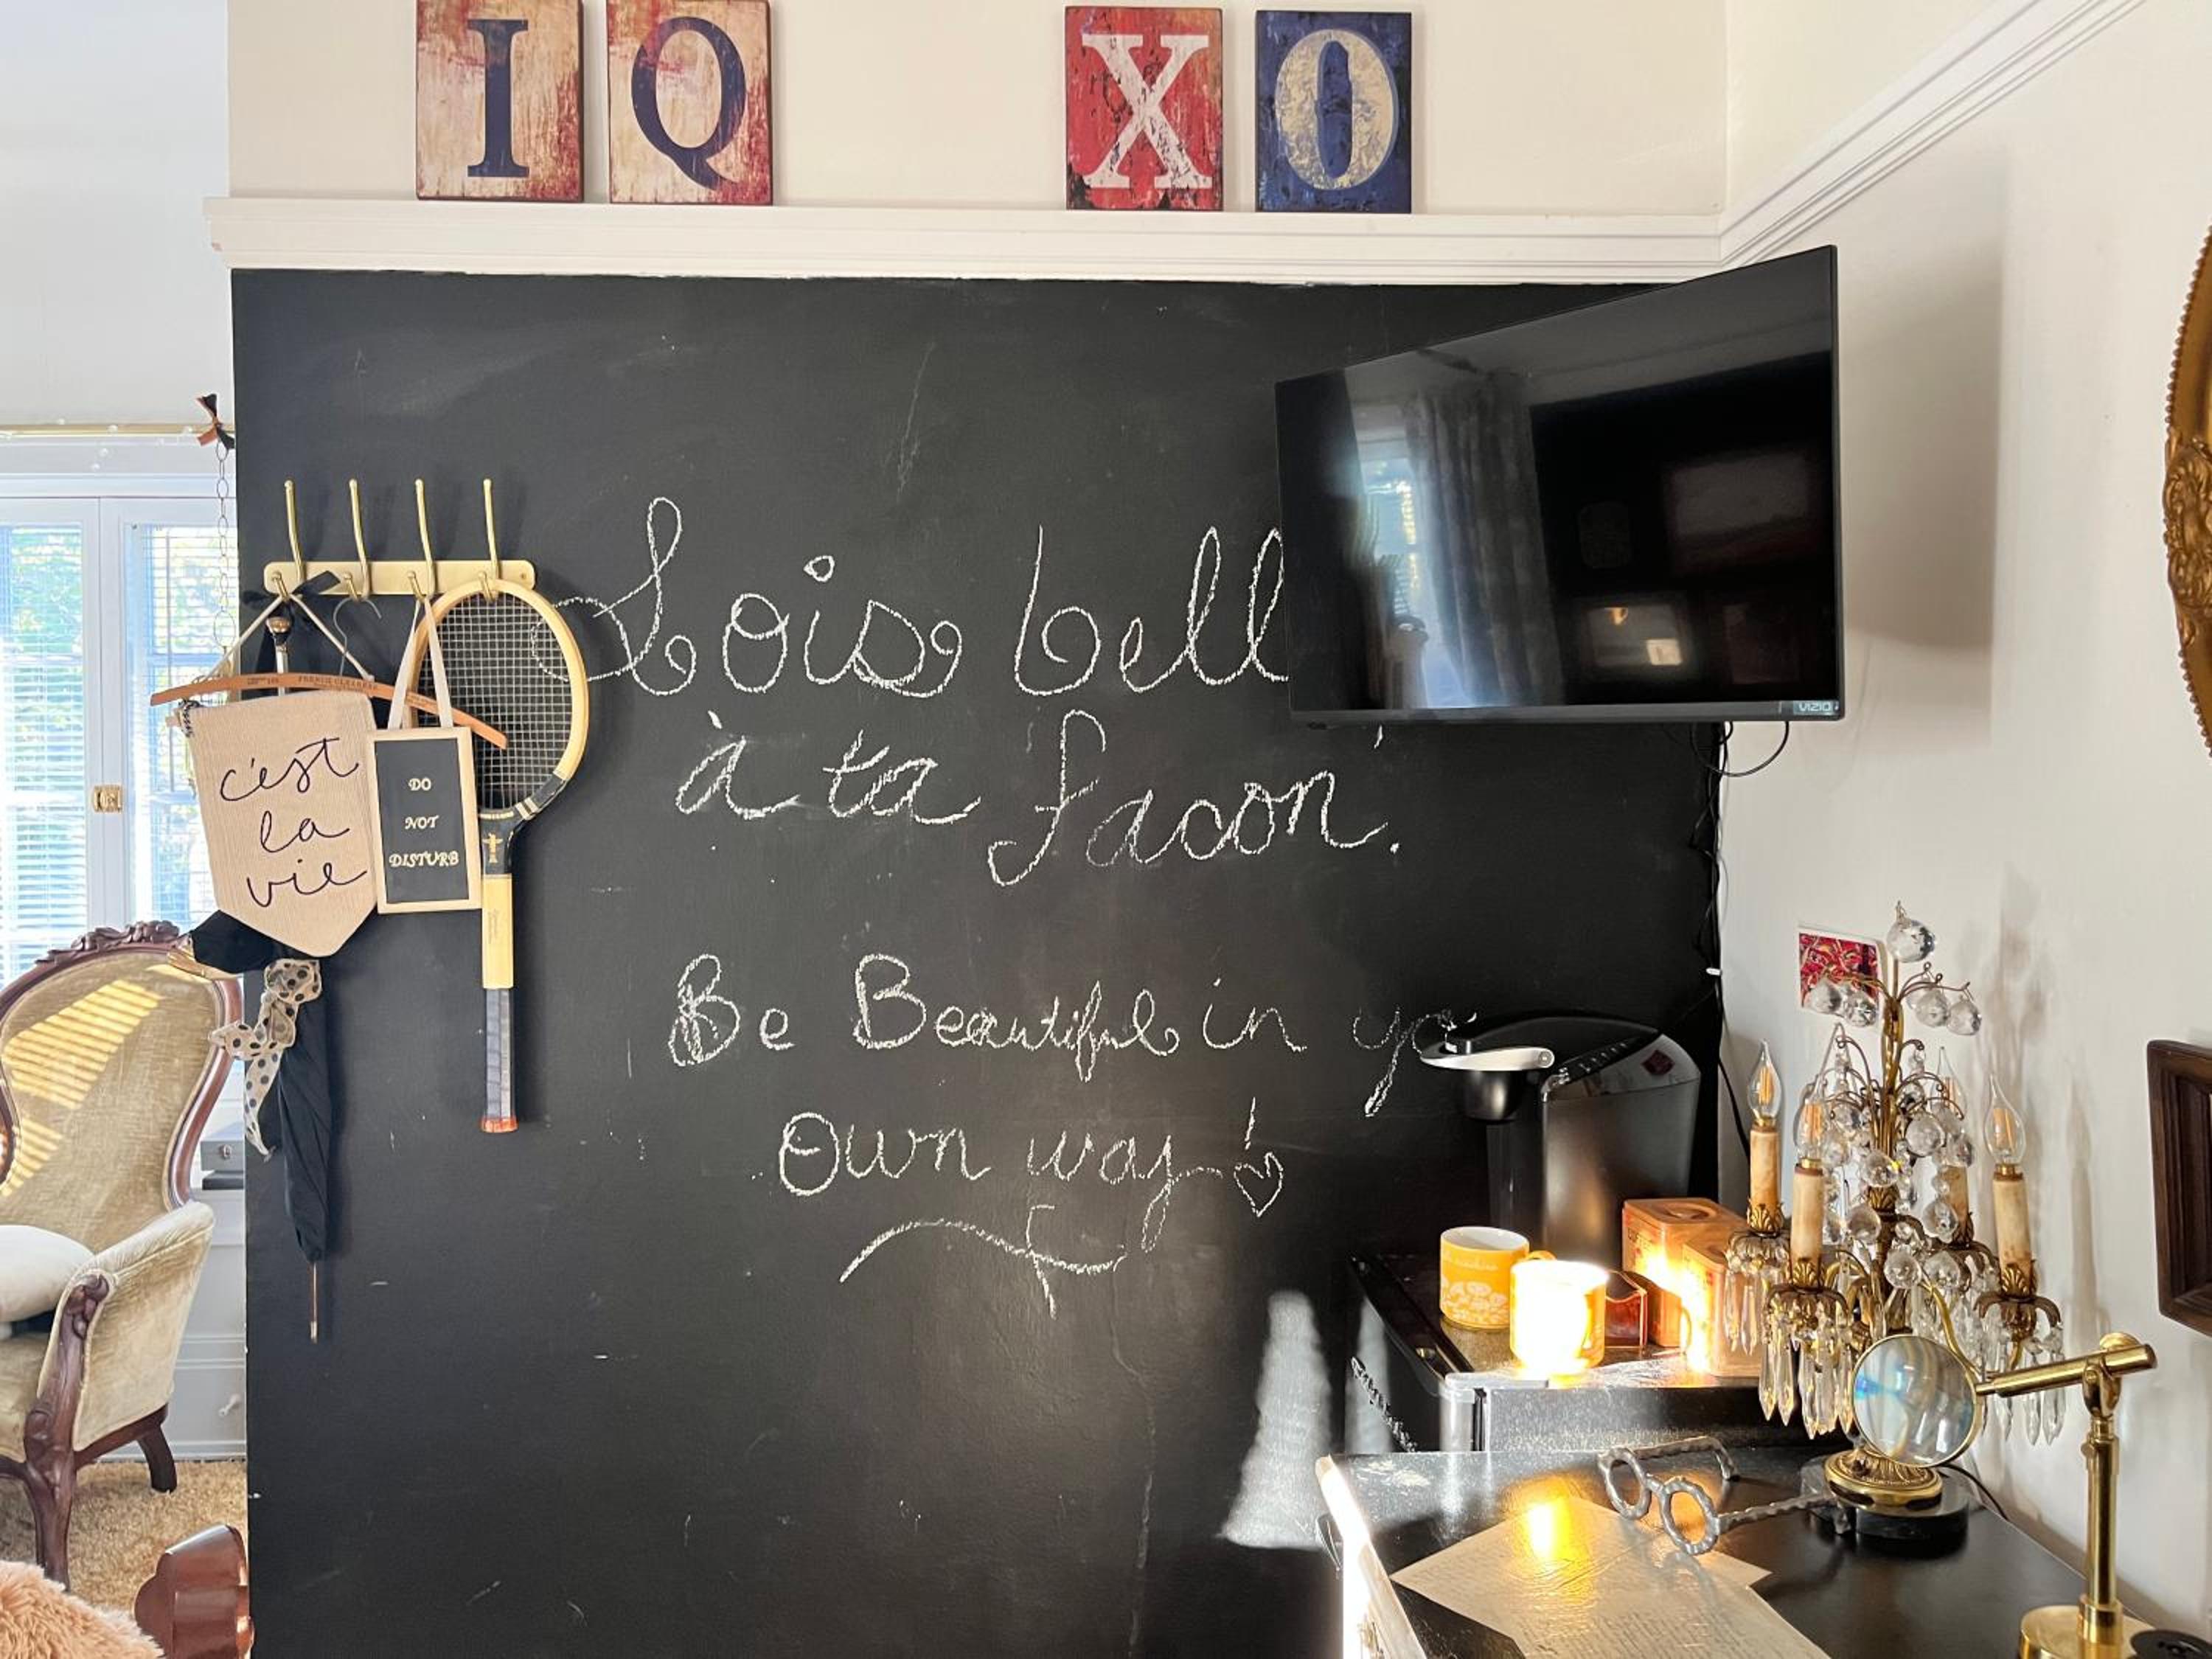 I Q X O
Sois bell
à ta facon.
Be Beautiful in yo
Own way!
c'est
la
vie
DO
NOT
DISTURB
FRENCH CLEANERS
VIZIO